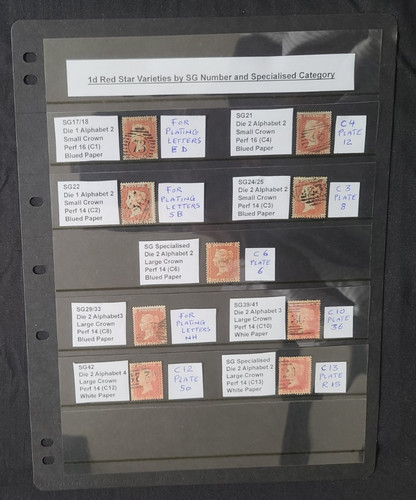 1d Red Star Varieties by SG Number and Specialised Category
SG17/18
Die 1 Alphabet 2
Small Crown
Perf 16 (C1)
Blued Paper
FOR
PLATING
LETTERS
B D
SG21
Die 2 Alphabet 2
Small Crown
Perf 16 (C4)
Blued Paper
C4
PLATE
12
SG22
Die 1 Alphabet 2
Small Crown
Perf 14 (C2)
Blued Paper
FOR
PLATING
LETTERS
SB
SG24/25
Die 2 Alphabet 2
Small Crown
Perf 14 (C3)
Blued Paper
C3
PLATE
8
SG Specialised
Die 2 Alphabet 2
Large Crown
Perf 14 (C6)
Blued Paper
C6
PLATE
6
SG29/33
Die 2 Alphabet3
Large Crown
Perf 14 (C8)
Blued Paper
FOR
PLATING
LETTERS
NH
SG39/41
Die 2 Alphabet 3
Large Crown
Perf 14 (C10)
Whie Paper
C10
PLATE
36
SG42
Die 2 Alphabet 4
Large Crown
Perf 14 (C12)
White Paper
C12
PLATE
50
SG Specialised
Die 2 Alphabet 2
Large Crown
Perf 14 (C13)
White Paper
C13
PLATE
R15